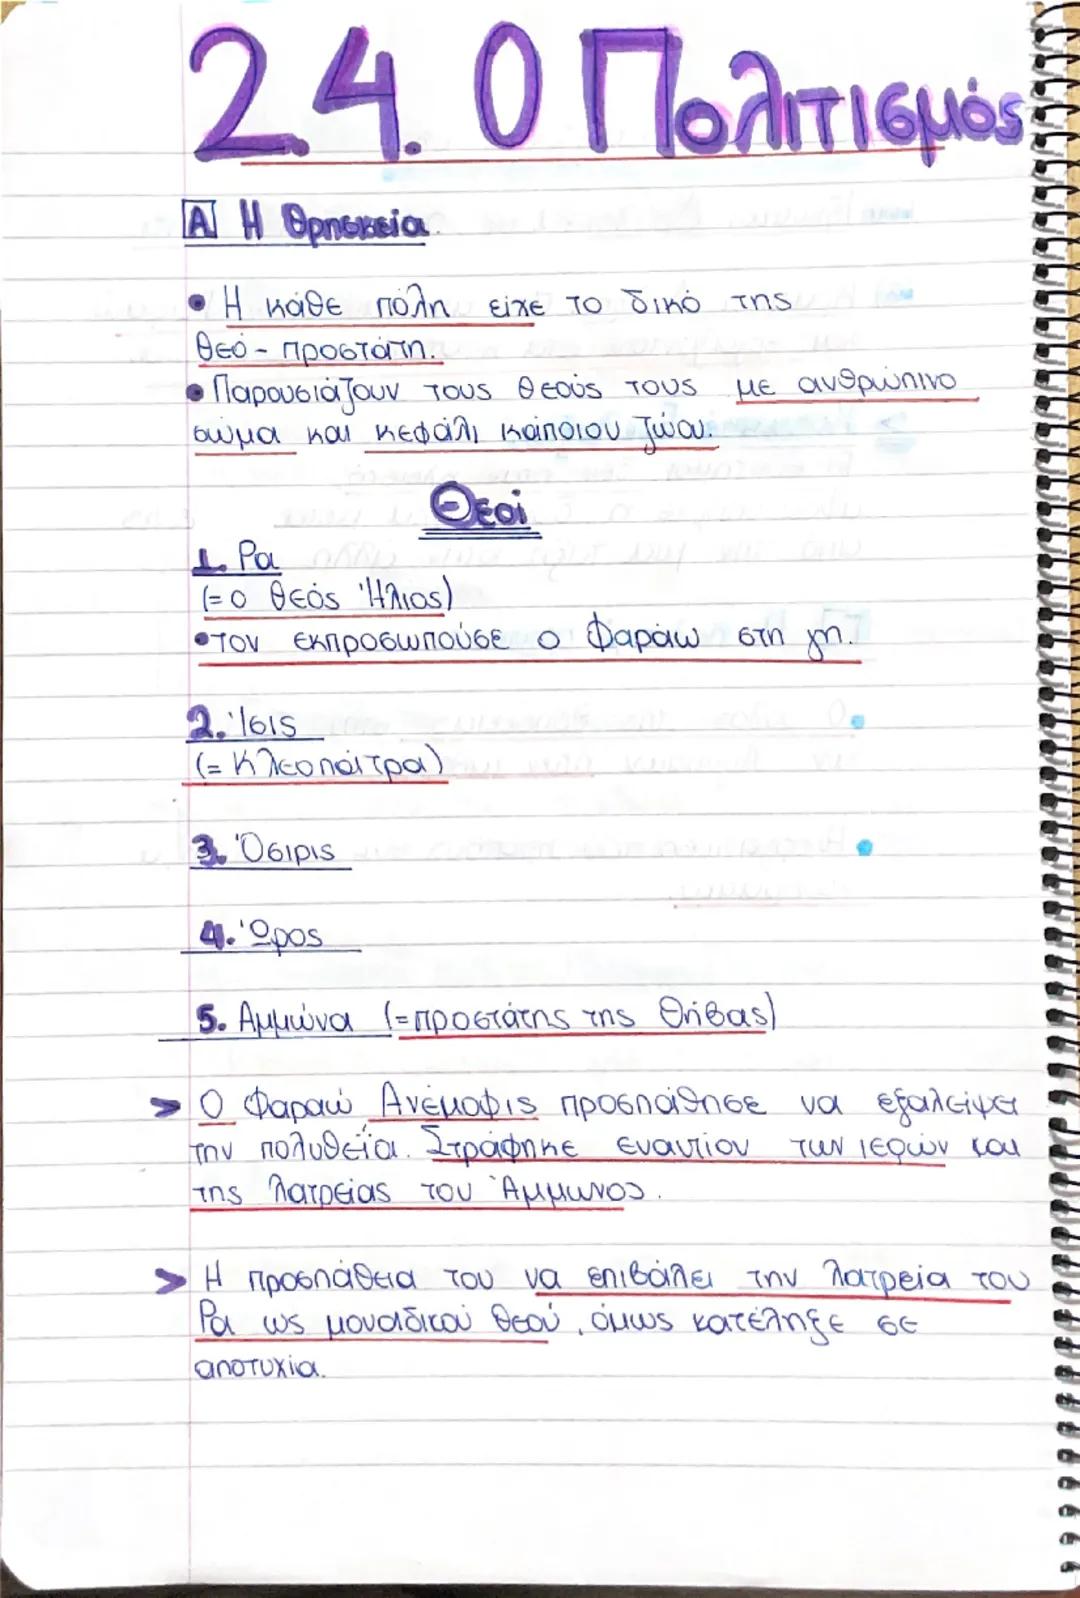 2.4. Ο Πολιτισμός
Α Η Θρησκεία.
• Η κάθε πόλη είχε το δικό της
θεό - προστάτη.
• Παρουσιάζουν τους θεούς τους με ανθρώπινο
σώμα και κεφάλι κάποιου ζώου.
Θεοί
1. Ρα
(= ο θεός Ήλιος)
• τον εκπροσωπούσε ο Φαραώ στη γη.
2. Ίσις
(= Κλεοπάτρα)
3. Όσιρις
4. Ώρος
5. Αμμώνα (= προστάτης της Θήβας)
> Ο Φαραώ Ανέμοφις προσπάθησε να εξαλείψει
την πολυθεΐα. Στράφηκε εναντίον των ιερών και
της λατρείας του Άμμωνος.
> Η προσπάθεια του να επιβάλει την λατρεία του
Ρα ως μοναδικού θεού, όμως κατέληξε σε
αποτυχία.